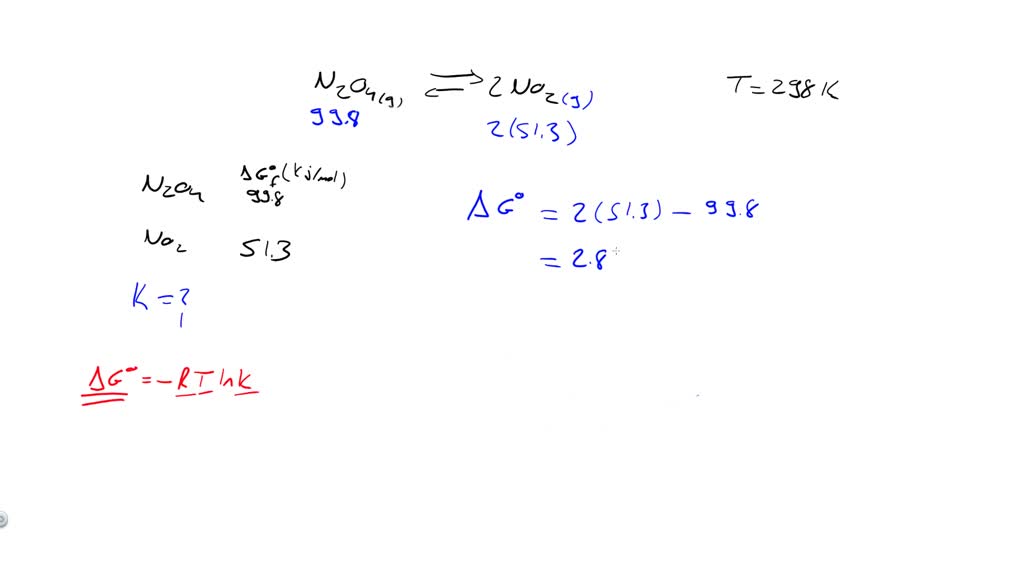 N₂O₄(g) ⇌ 2NO₂(g) T = 298 K
99.8 2(51.3)
ΔG°f (kJ/mol)
N₂O₄ 99.8
NO₂ 51.3
K = ?
ΔG° = 2(51.3) – 99.8
= 2.8
ΔG° = –RT ln K